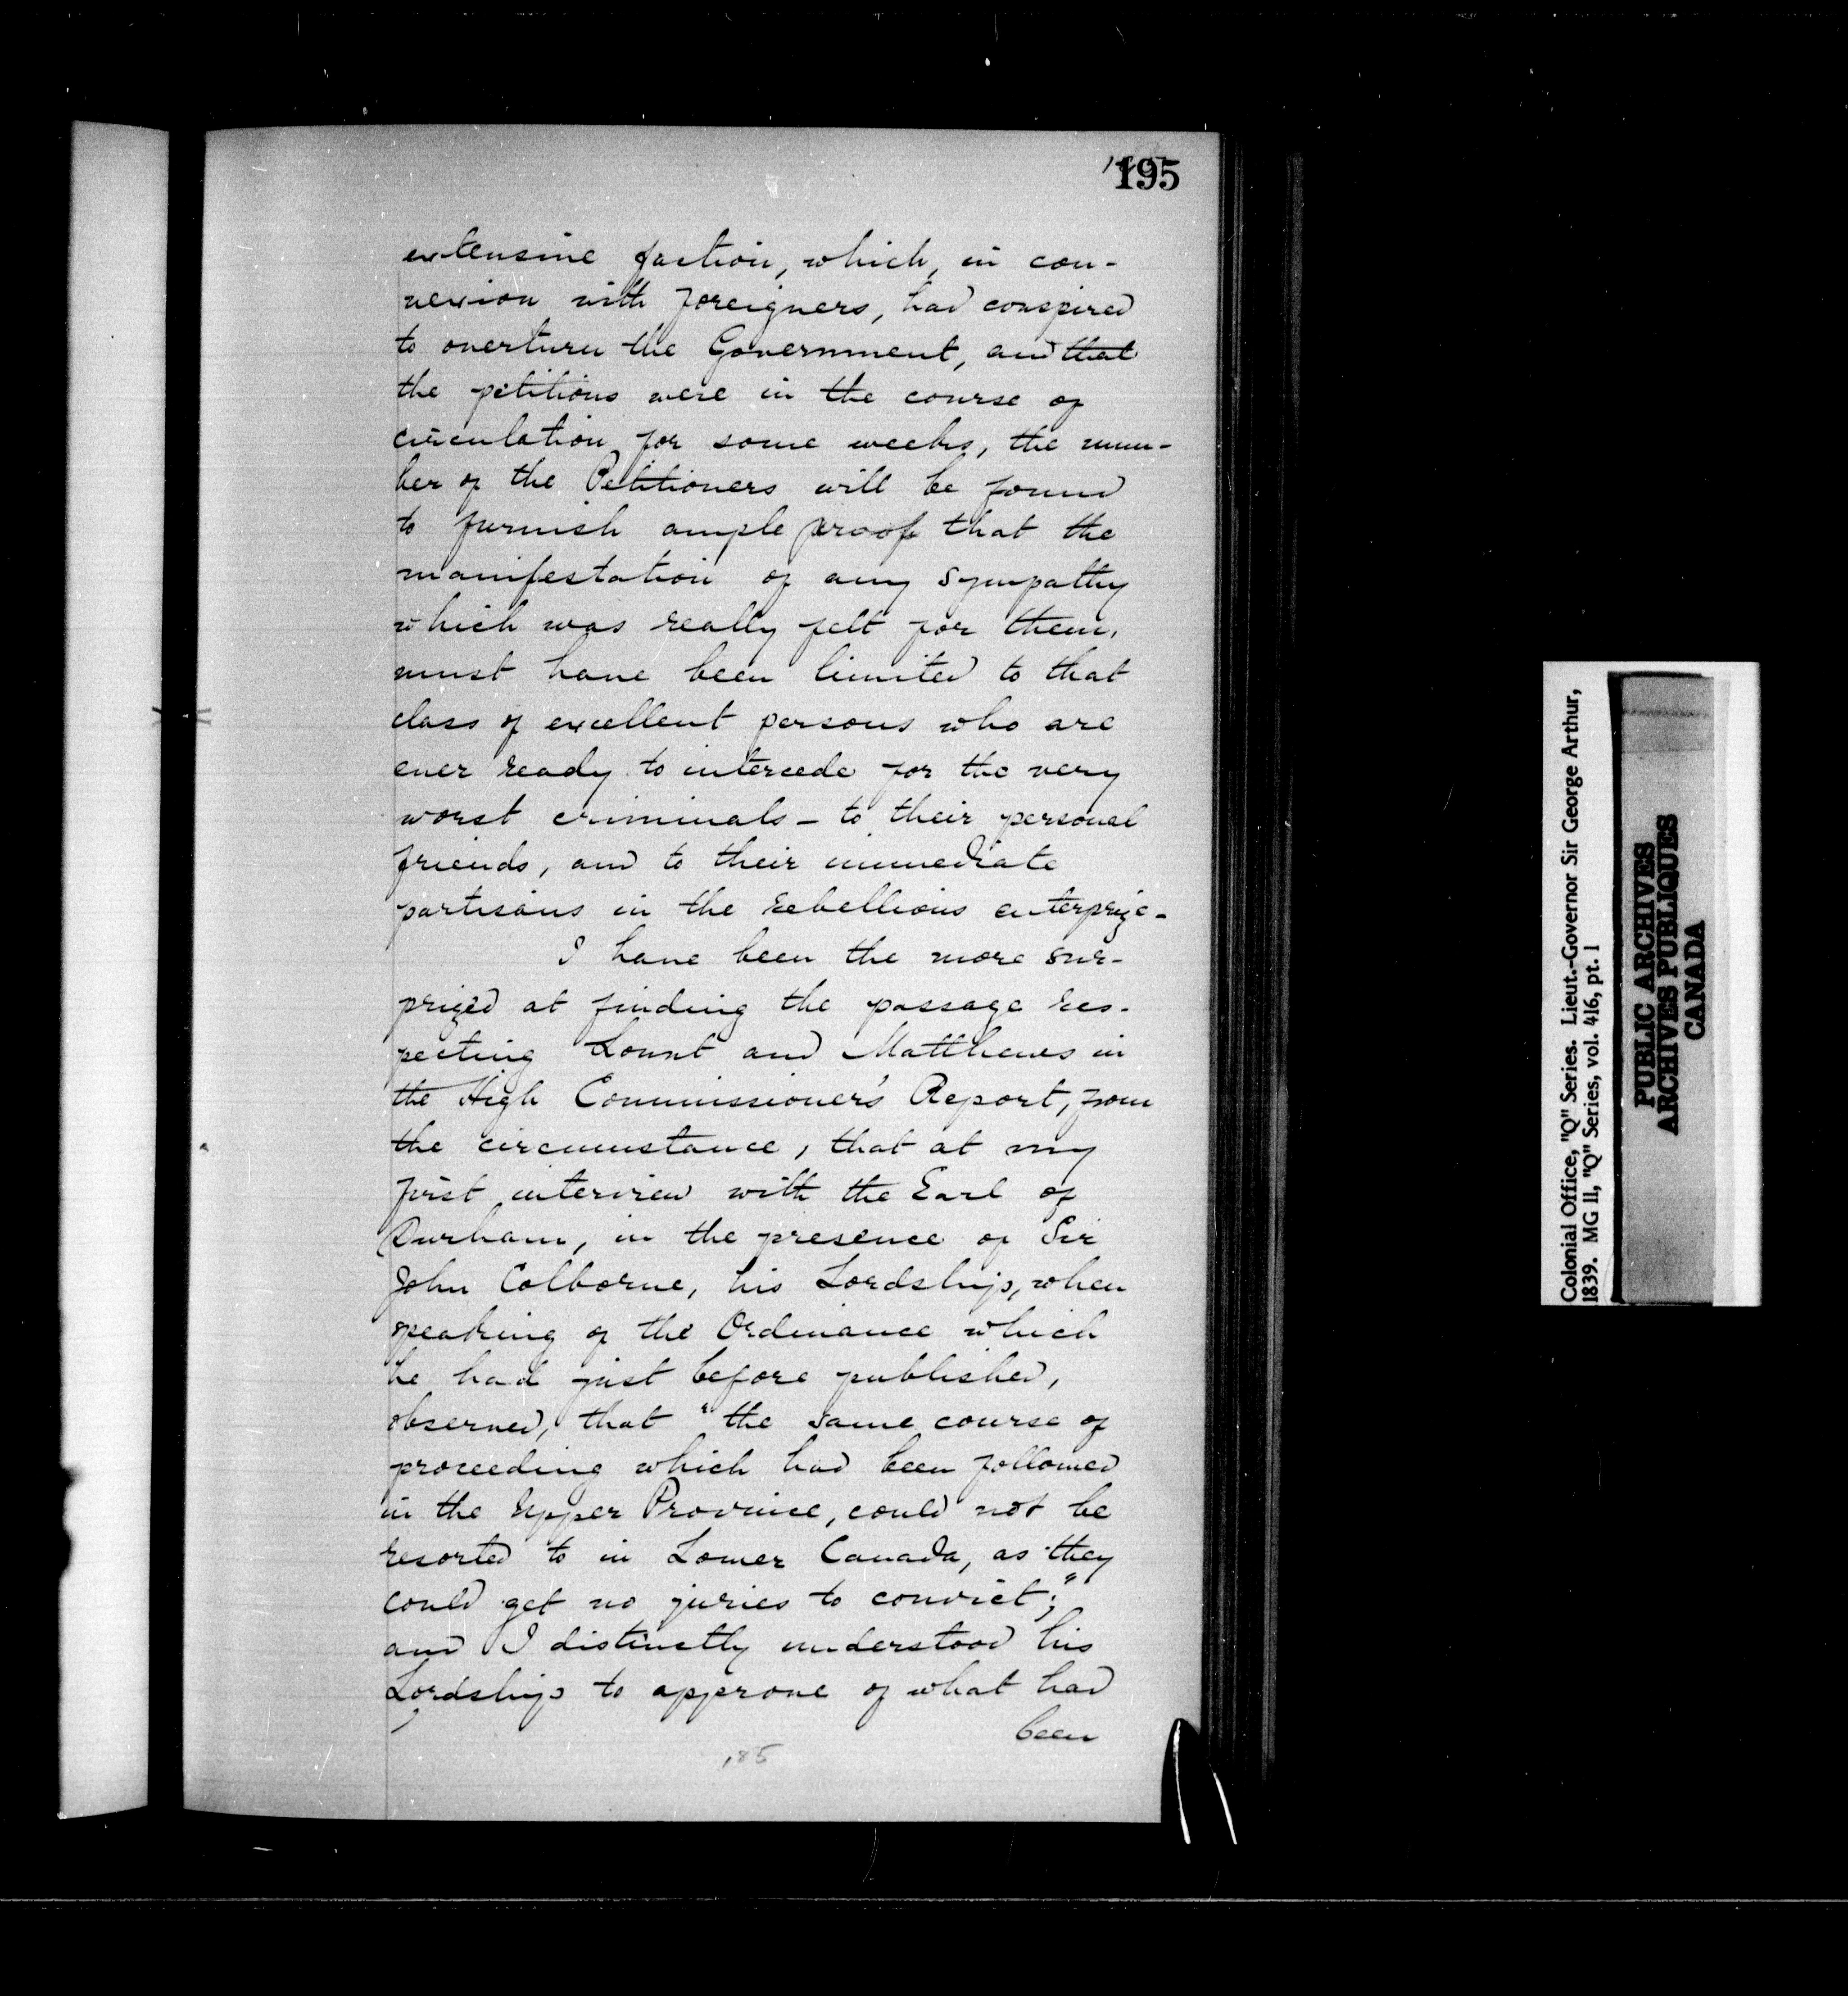 195
extensive faction, which, in con-
nexion with foreigners, had conspired
to overturn the Government, and that
the petitions were in the course of
circulation for some weeks, the num-
ber of the Petitioners will be found
to furnish ample proof that the
manifestation of any sympathy
which was really felt for them,
must have been limited to that
class of excellent persons who are
ever ready to intercede for the very
worst criminals – to their personal
friends, and to their immediate
partisans in the rebellious enterprize –
I have been the more sur-
prized at finding the passage res-
pecting Lount and Matthews in
the High Commissioner's Report, from
the circumstance, that at my
first interview with the Earl of
Durham, in the presence of Sir
John Colborne, his Lordship, when
speaking of the Ordinance which
he had just before published,
observed, that "the same course of
proceeding which had been followed
in the Upper Province, could not be
resorted to in Lower Canada, as they
could get no juries to convict;"
and I distinctly understood his
Lordship to approve of what had
been
185
Colonial Office, "Q" Series. Lieut.-Governor Sir George Arthur,
1839. MG 11, "Q" Series, vol. 416, pt. 1
PUBLIC ARCHIVES
ARCHIVES PUBLIQUES
CANADA